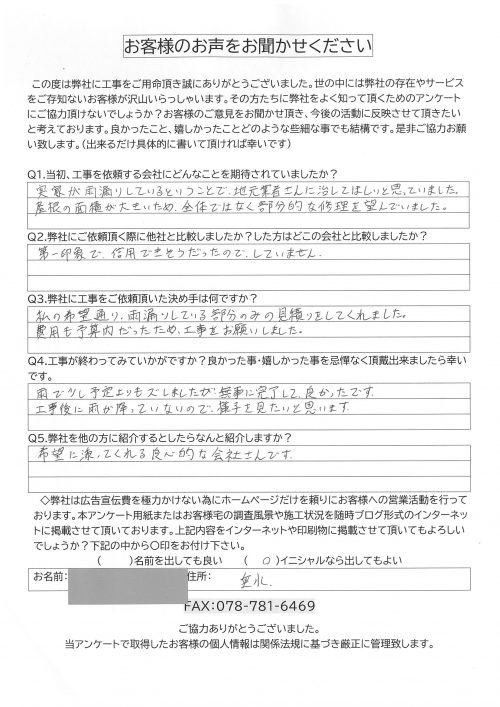 お客様のお声をお聞かせください
この度は弊社に工事をご用命頂き誠にありがとうございました。世の中には弊社の存在やサービス
をご存知ないお客様が沢山いらっしゃいます。その方たちに弊社をよく知って頂くためのアンケート
にご協力頂けないでしょうか？お客様のご意見をお聞かせ頂き、今後の活動に反映させて頂きたい
と考えております。良かったこと、嬉しかったことどのような些細な事でも結構です。是非ご協力お願
い致します。(出来るだけ具体的に書いて頂ければ幸いです)
Q1.当初、工事を依頼する会社にどんなことを期待されていましたか？
実家が雨漏りしているということで、地元業者さんに治してほしいと思っていました。
屋根の面積が大きいため、全体ではなく部分的な修理を望んでいました。
Q2.弊社にご依頼頂く際に他社と比較しましたか？した方はどこの会社と比較しましたか？
第一印象で、信用できそうだったので、していません。
Q3.弊社に工事をご依頼頂いた決め手は何ですか？
私の希望通り、雨漏りしている部分のみの見積りをしてくれました。
費用も予算内だったため、工事をお願いしました。
Q4.工事が終わってみていかがですか？良かった事・嬉しかった事を忌憚なく頂戴出来ましたら幸い
です。
雨で少し予定よりもズレましたが、無事に完了して、良かったです。
工事後に雨が降っていないので、様子を見たいと思います。
Q5.弊社を他の方に紹介するとしたらなんと紹介しますか？
希望に添ってくれる良心的な会社さんです。
◇弊社は広告宣伝費を極力かけない為にホームページだけを頼りにお客様への営業活動を行って
おります。本アンケート用紙またはお客様宅の調査風景や施工状況を随時ブログ形式のインターネッ
トに掲載させて頂いております。上記内容をインターネットや印刷物に掲載させて頂いてもよろしい
でしょうか？下記の中から〇印をお付け下さい。
(　　)名前を出しても良い　(　○　)イニシャルなら出してもよい
お名前:　住所:　垂水
FAX:078-781-6469
ご協力ありがとうございました。
当アンケートで取得したお客様の個人情報は関係法規に基づき厳正に管理致します。